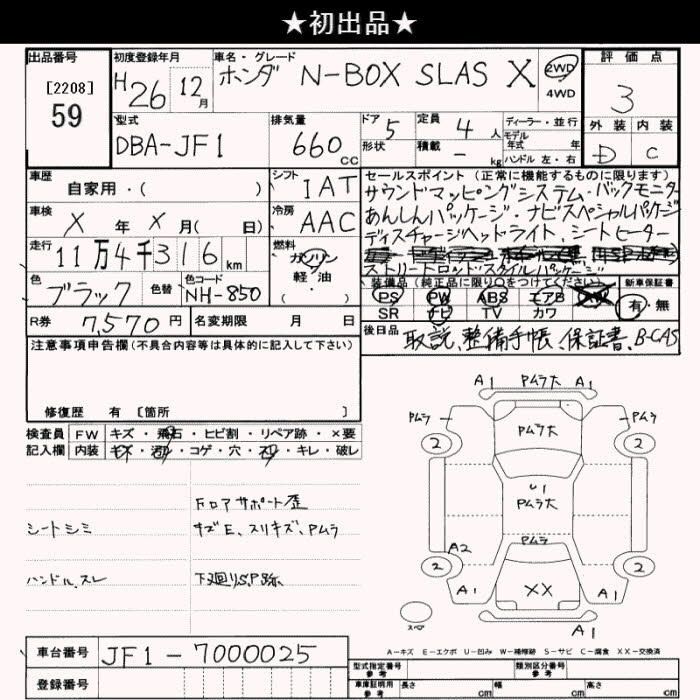 ★初出品★
出品番号
[2208]
59
初度登録年月
H26 12月
車名・グレード
ホンダ N-BOX SLAS X
2WD
4WD
評価点
3
外装 内装
D C
型式
DBA-JF1
排気量
660 CC
ドア 5
形状
定員 4 人
積載 - kg
ディーラー・並行
モデル
年式 年
ハンドル 左・右
車歴
自家用・( )
シフト IAT
車検
X 年 X 月( 日)
冷房 AAC
走行
11万4千316 km
燃料
ガソリン
軽・油
色 ブラック 色替
色コード NH-850
R券 7,570 円
名変期限 月 日
セールスポイント(正常に機能するものに限ります)
サウンドマッピングシステム・バックモニター
あんしんパッケージ・ナビスペシャルパッケージ
ディスチャージヘッドライト、シートヒーター
ストリートロッドスタイルパッケージ
装備品(純正品に限り〇をつけてください)
PS PW ABS エアB AW
SR ナビ TV カワ
新車保証書
有・無
後日品 取説、整備手帳、保証書、B-CAS
注意事項申告欄(不具合内容等は具体的に記入して下さい)
修復歴 有 [箇所 ]
検査員 FW キズ・飛石・ヒビ割・リペア跡・×要
記入欄 内装 キズ・汚レ・コゲ・穴・スレ・キレ・破レ
フロアサポート歪
シートシミ
サズE、スリキズ、Pムラ
ハンドル、スレ
下廻りS、P跡
A1 Pムラ大 A1
Pムラ Pムラ
2 Pムラ大 2
U1
Pムラ大
Pムラ
A2
2 2
A1 XX A1
A1
スペア
A-キズ E-エクボ U-凹み W-補修跡 S-サビ C-腐食 XX-交換済
車台番号 JF1-7000025
登録番号
型式指定番号
参考
類別区分番号
参考
車庫証明用
参考
長さ cm 幅 cm 高さ cm